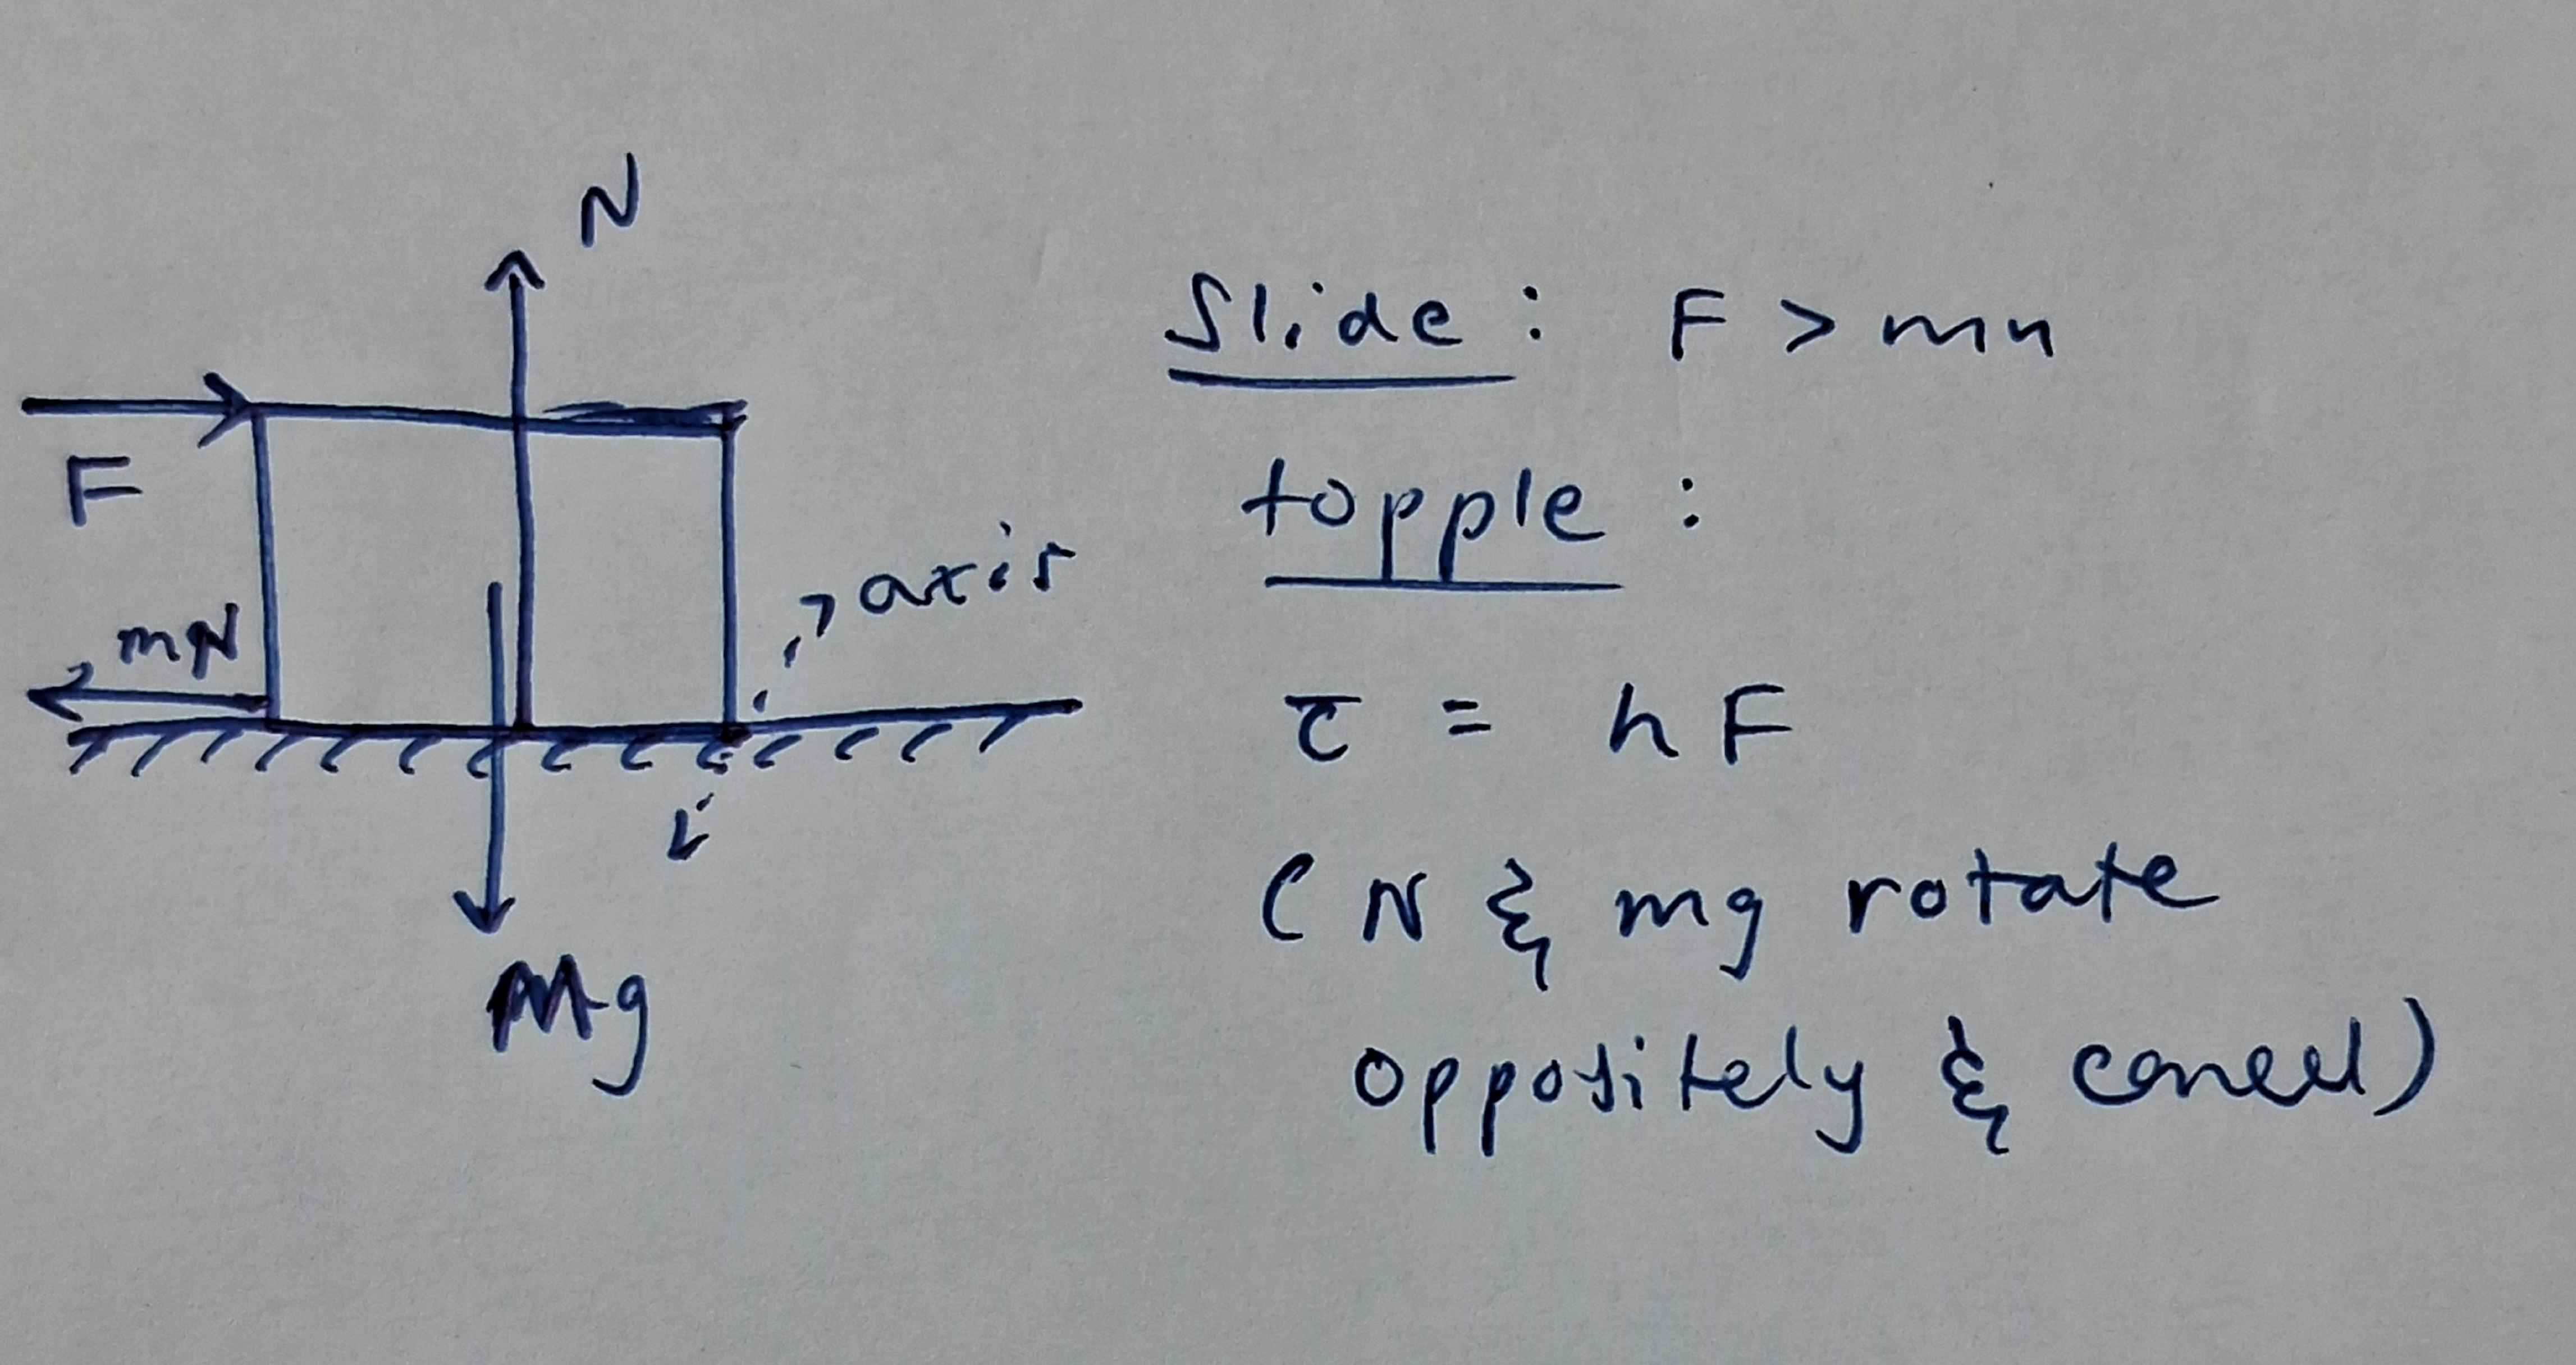 N
F
mN
axis
Mg
Slide : F > mn
topple :
τ = hF
(N & mg rotate
oppositely & cancel)